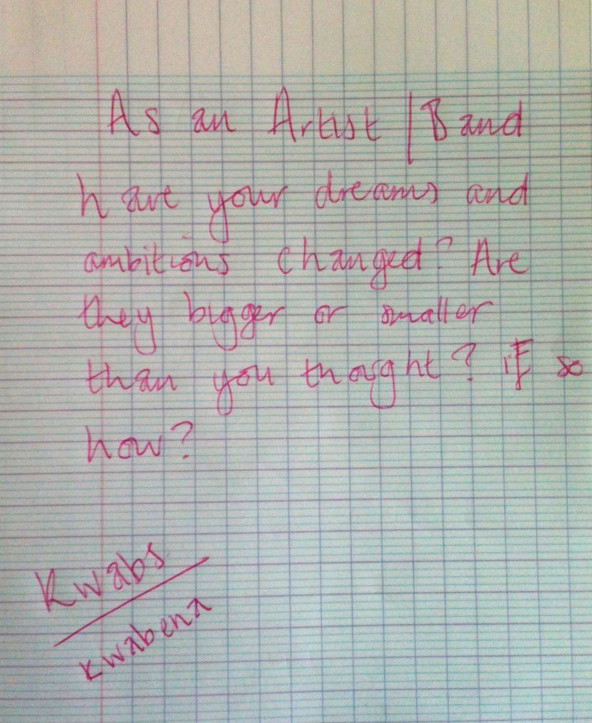 As an Artist | Band
have your dreams and
ambitions changed? Are
they bigger or smaller
than you thought? if so
how?
Kwabs
Kwabena